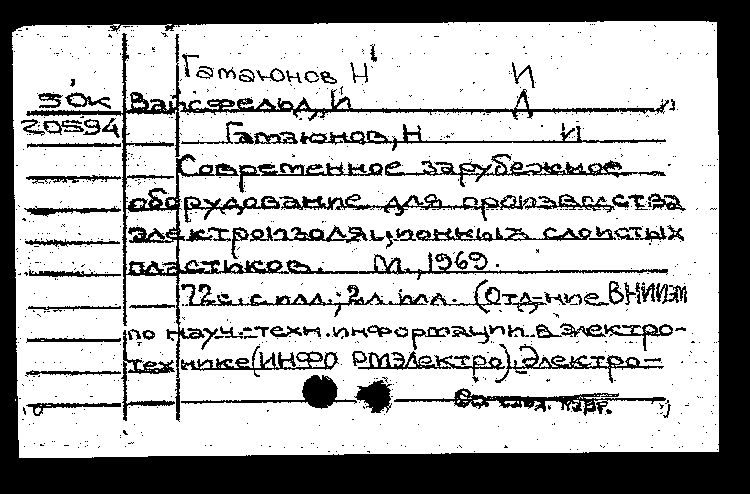 Гамаюнов Н И
30к Вайсфельд, И Д
20594 Гамаюнов, Н И
Современное зарубежное
оборудование для производства
электроизоляционных слоистых
пластиков. М., 1969.
72с. с илл.; 2л. илл. (Отд-ние ВНИИЭМ
по науч.-техн. информации в электро-
технике (ИНФОРМЭЛЕКТРО). Электро-